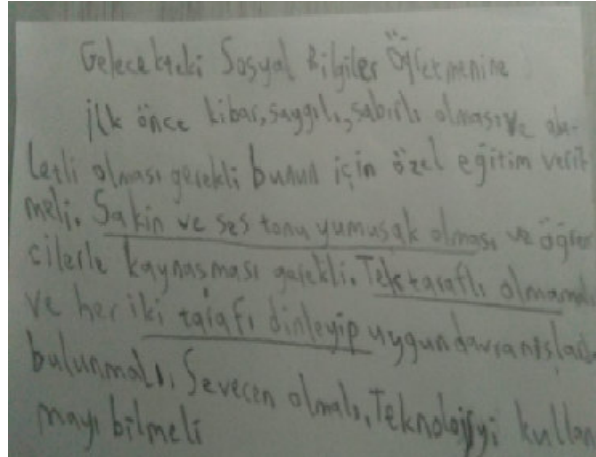 Gelecekteki Sosyal Bilgiler Öğretmenine
İlk önce kibar, saygılı, sabırlı olması ve ada-
letli olması gerekli bunun için özel eğitim veril
meli. Sakin ve ses tonu yumuşak olması ve öğren
cilerle kaynaşması gerekli. Tek taraflı olmamalı
ve her iki tarafı dinleyip uygun davranışlarda
bulunmalı, Sevecen olmalı, Teknolojiyi kullan
mayı bilmeli